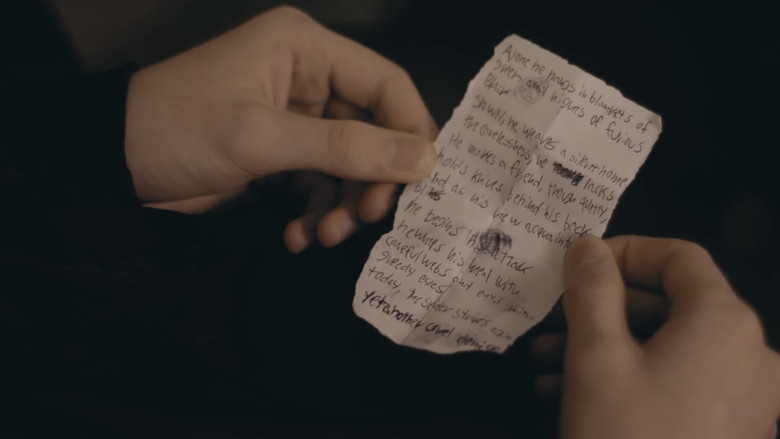 Alone he hangs in blankets of
green and hours of furious
Slowly, he weaves a silken home
the carelessness, he lacks
He makes a friend, though quietly,
holds knives behind his back
but as his new acquaint
blinks
he begins his attack
he wraps his meal with
careful webs and eats with
greedy eyes
today, the spider strikes again
yet another cruel demise